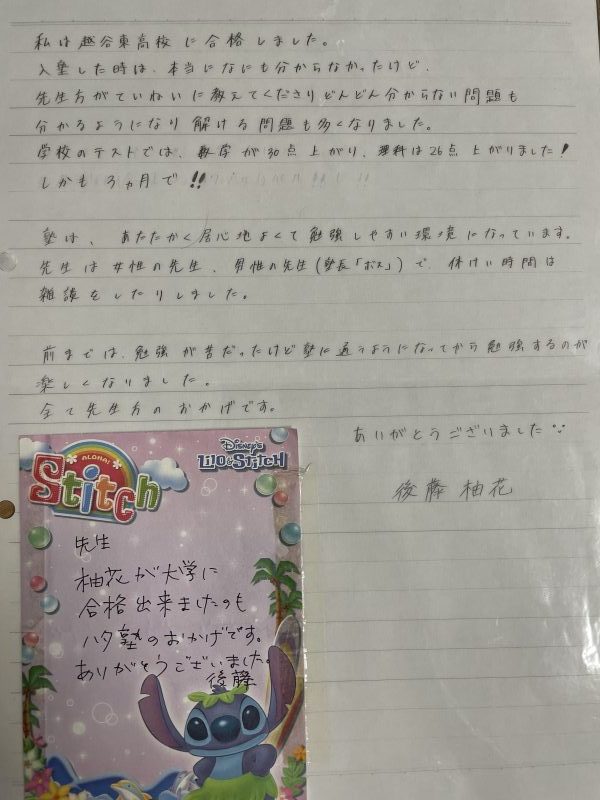 私は越谷東高校に合格しました。
入塾した時は、本当になにも分からなかったけど、
先生方がていねいに教えてくださりどんどん分からない問題も
分かるようになり解ける問題も多くなりました。
学校のテストでは、数学が30点上がり、理科は26点上がりました!
しかも3ヵ月で!!
塾は、あたたかく居心地よくて勉強しやすい環境になっています。
先生は女性の先生、男性の先生(塾長「ボス」)で、休けい時間は
雑談をしたりしました。
前までは、勉強が苦だったけど塾に通うようになってから勉強するのが
楽しくなりました。
全て先生方のおかげです。
ありがとうございました
後藤柚花
ALOHA!
Stitch
Disney's
LILO & STITCH
先生
柚花が大学に
合格出来ましたのも
ハタ塾のおかげです。
ありがとうございました。
後藤